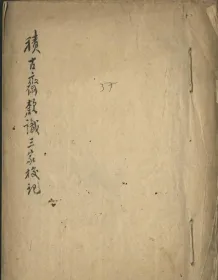 積古齋款識三家校記